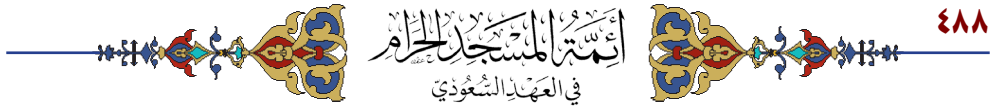 ٤٨٨
أئمة المسجد الحرام
في العهد السعودي